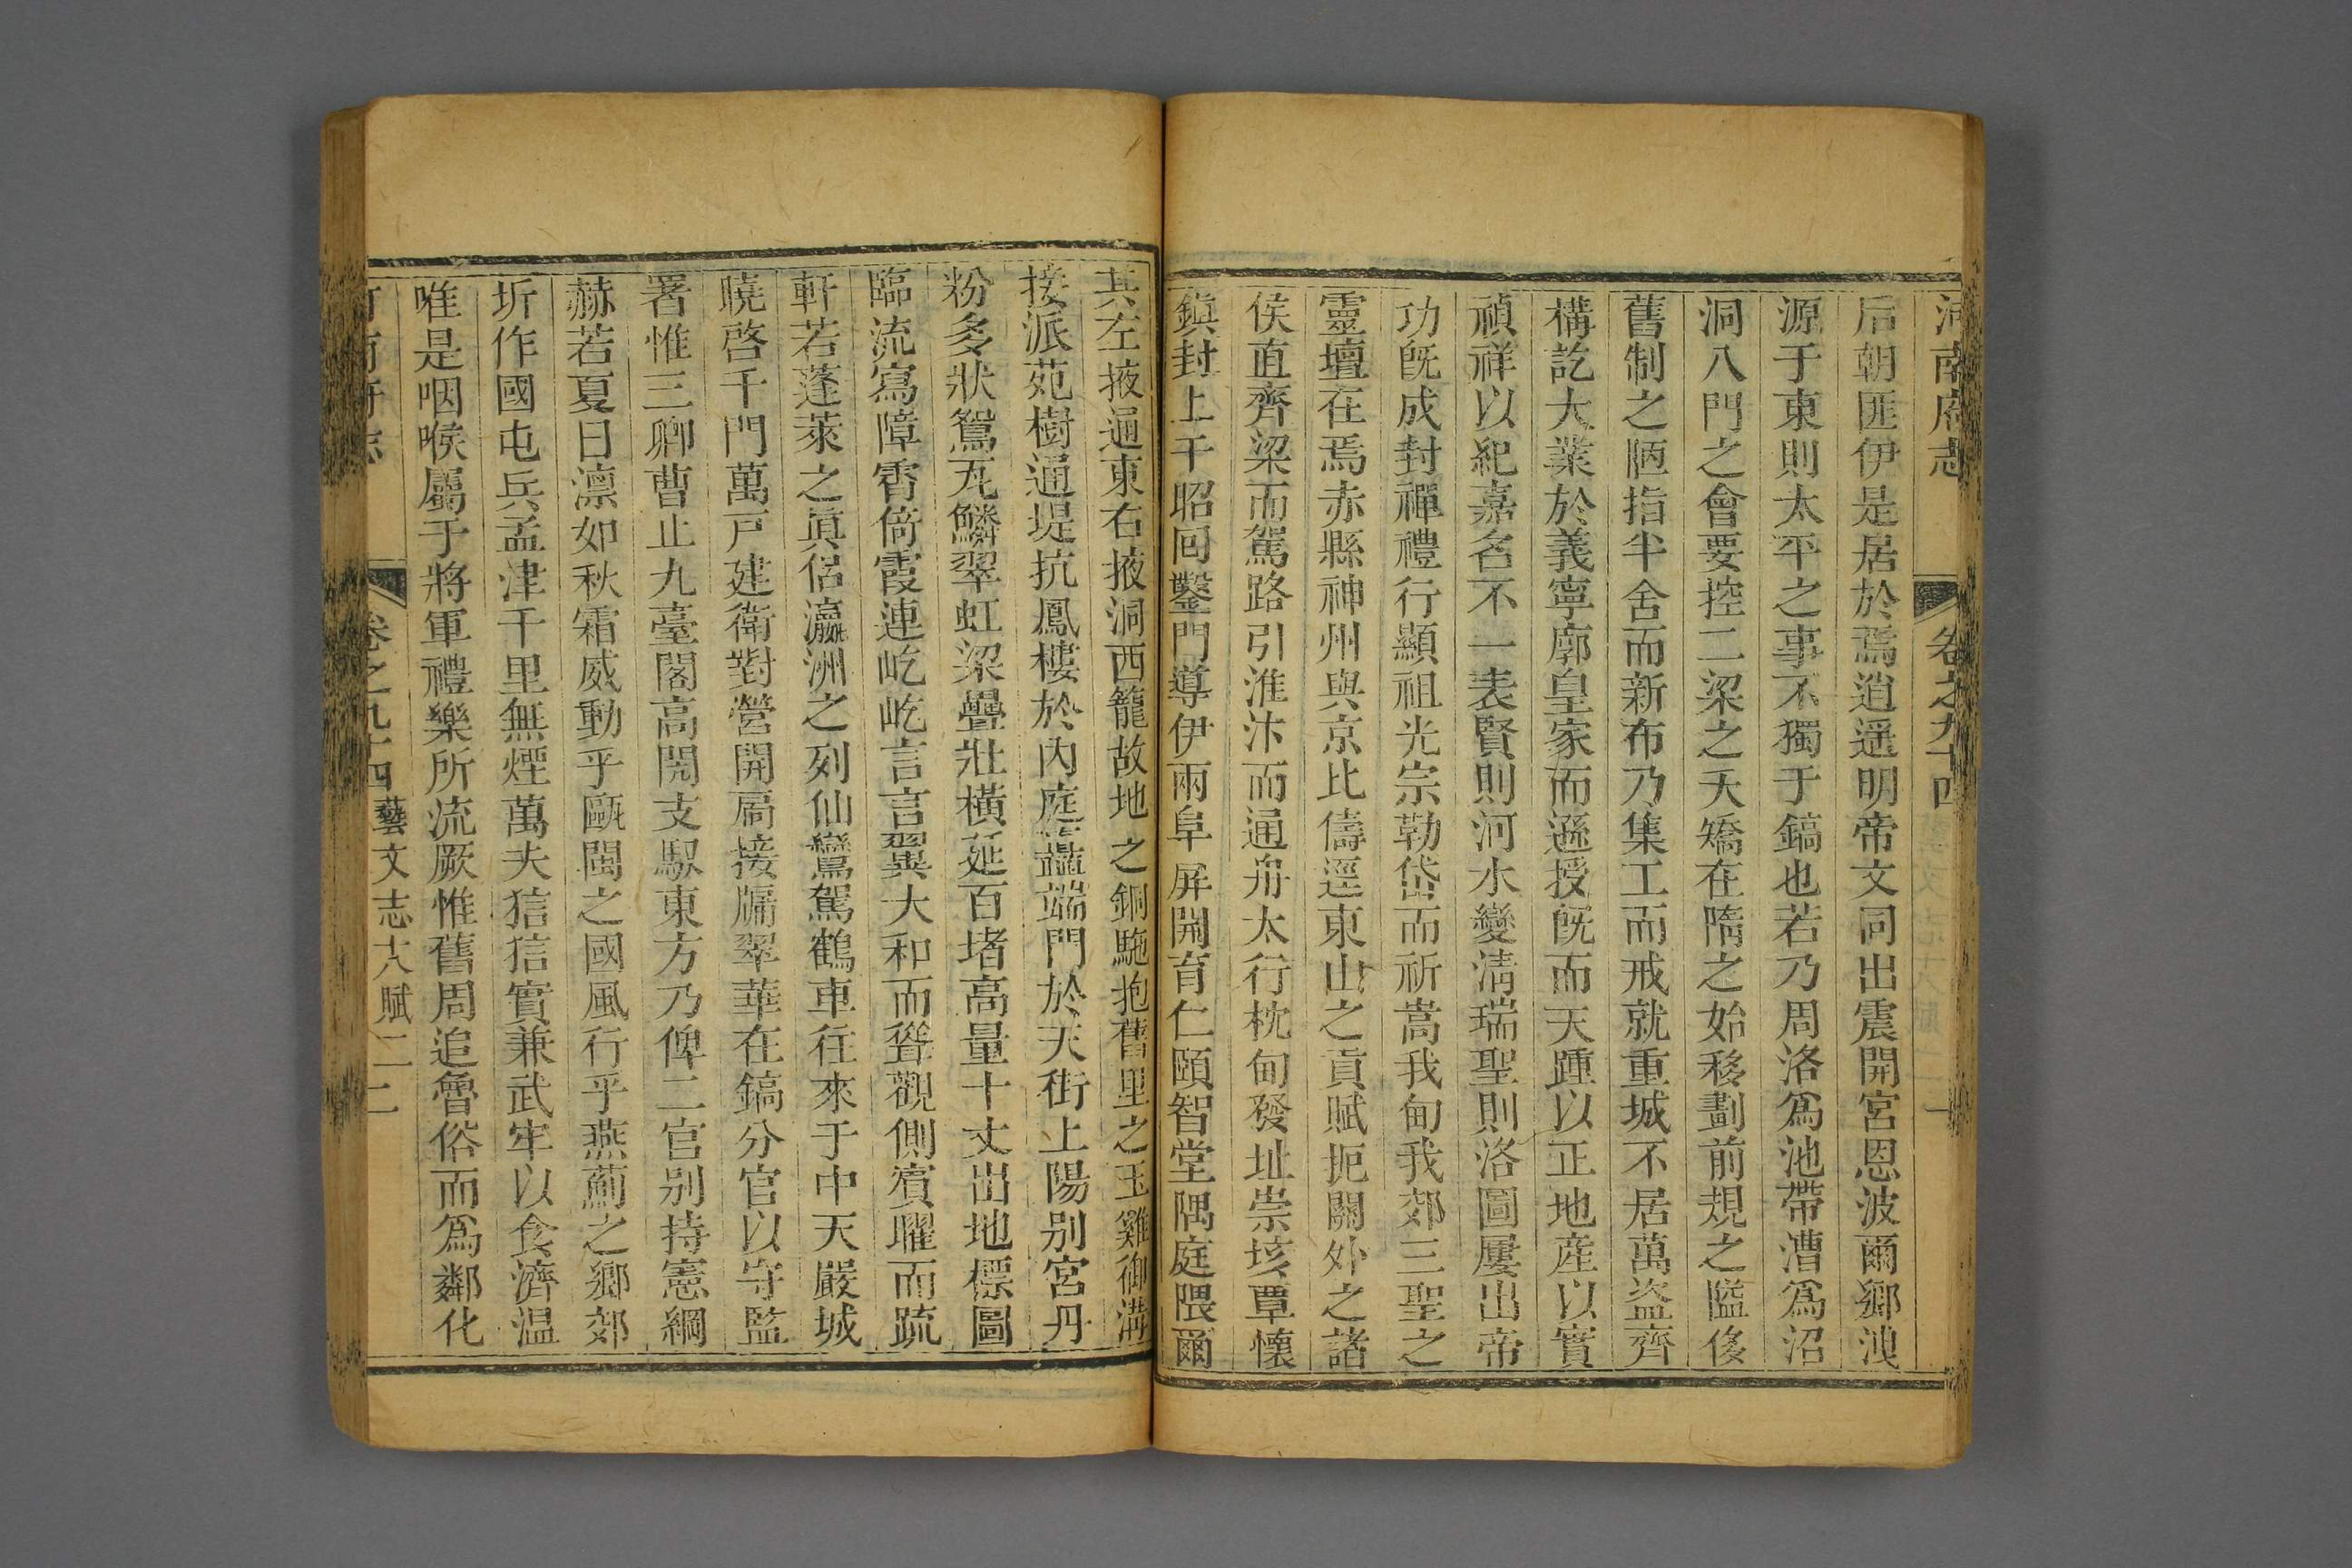 河南府志 卷之九十四
后朝匪伊是居於焉逍遥明帝文同出震開宮恩波爾鄉洩
源于東則太平之事不獨于鎬也若乃周洛爲池帶漕爲沼
洞八門之會要控二梁之夭矯在隋之始移劃前規之隘俢
舊制之陋指半舍而新布乃集工而戒就重城不居萬盗齊
構訖大業於義寧廓皇家而遜授旣而天踵以正地産以實
禎祥以紀嘉名不一表賢則河水變淸瑞聖則洛圖屢出帝
功旣成封禪禮行顯祖光宗勒岱而祈嵩我甸我郊三聖之
靈壇在焉赤縣神州與京比儔逕東山之貢賦扼關外之諸
侯直齊梁而駕路引淮汴而通舟太行枕甸發址崇垓覃懷
鎭封上干昭回鑿門導伊兩阜屏開育仁頤智堂隅庭隈爾
其左掖通東右掖洞西籠故地之銅駞抱舊里之玉雞御溝
接派苑樹通堤抗鳳樓於內庭矗端門於天街上陽别宮丹
粉多狀鴛瓦鱗翠虹梁疊壯橫延百堵高量十丈出地標圖
臨流寫障霄倚霞連屹屹言言翼大和而聳觀側賓曜而疏
軒若蓬萊之眞侶瀛洲之列仙鸞駕鶴車往來于中天嚴城
曉啓千門萬戸建衛對營開扃接牖翠華在鎬分官以守監
署惟三卿曹止九臺閣高閱支馭東方乃俾二官别持憲綱
赫若夏日凛如秋霜威動乎甌閩之國風行乎燕薊之鄉郊
圻作國屯兵孟津千里無煙萬夫狺狺實兼武牢以食濟温
唯是咽喉屬于將軍禮樂所流厥惟舊周追魯俗而爲鄰化
河南府志 卷之九十四 藝文志十八 賦二 二